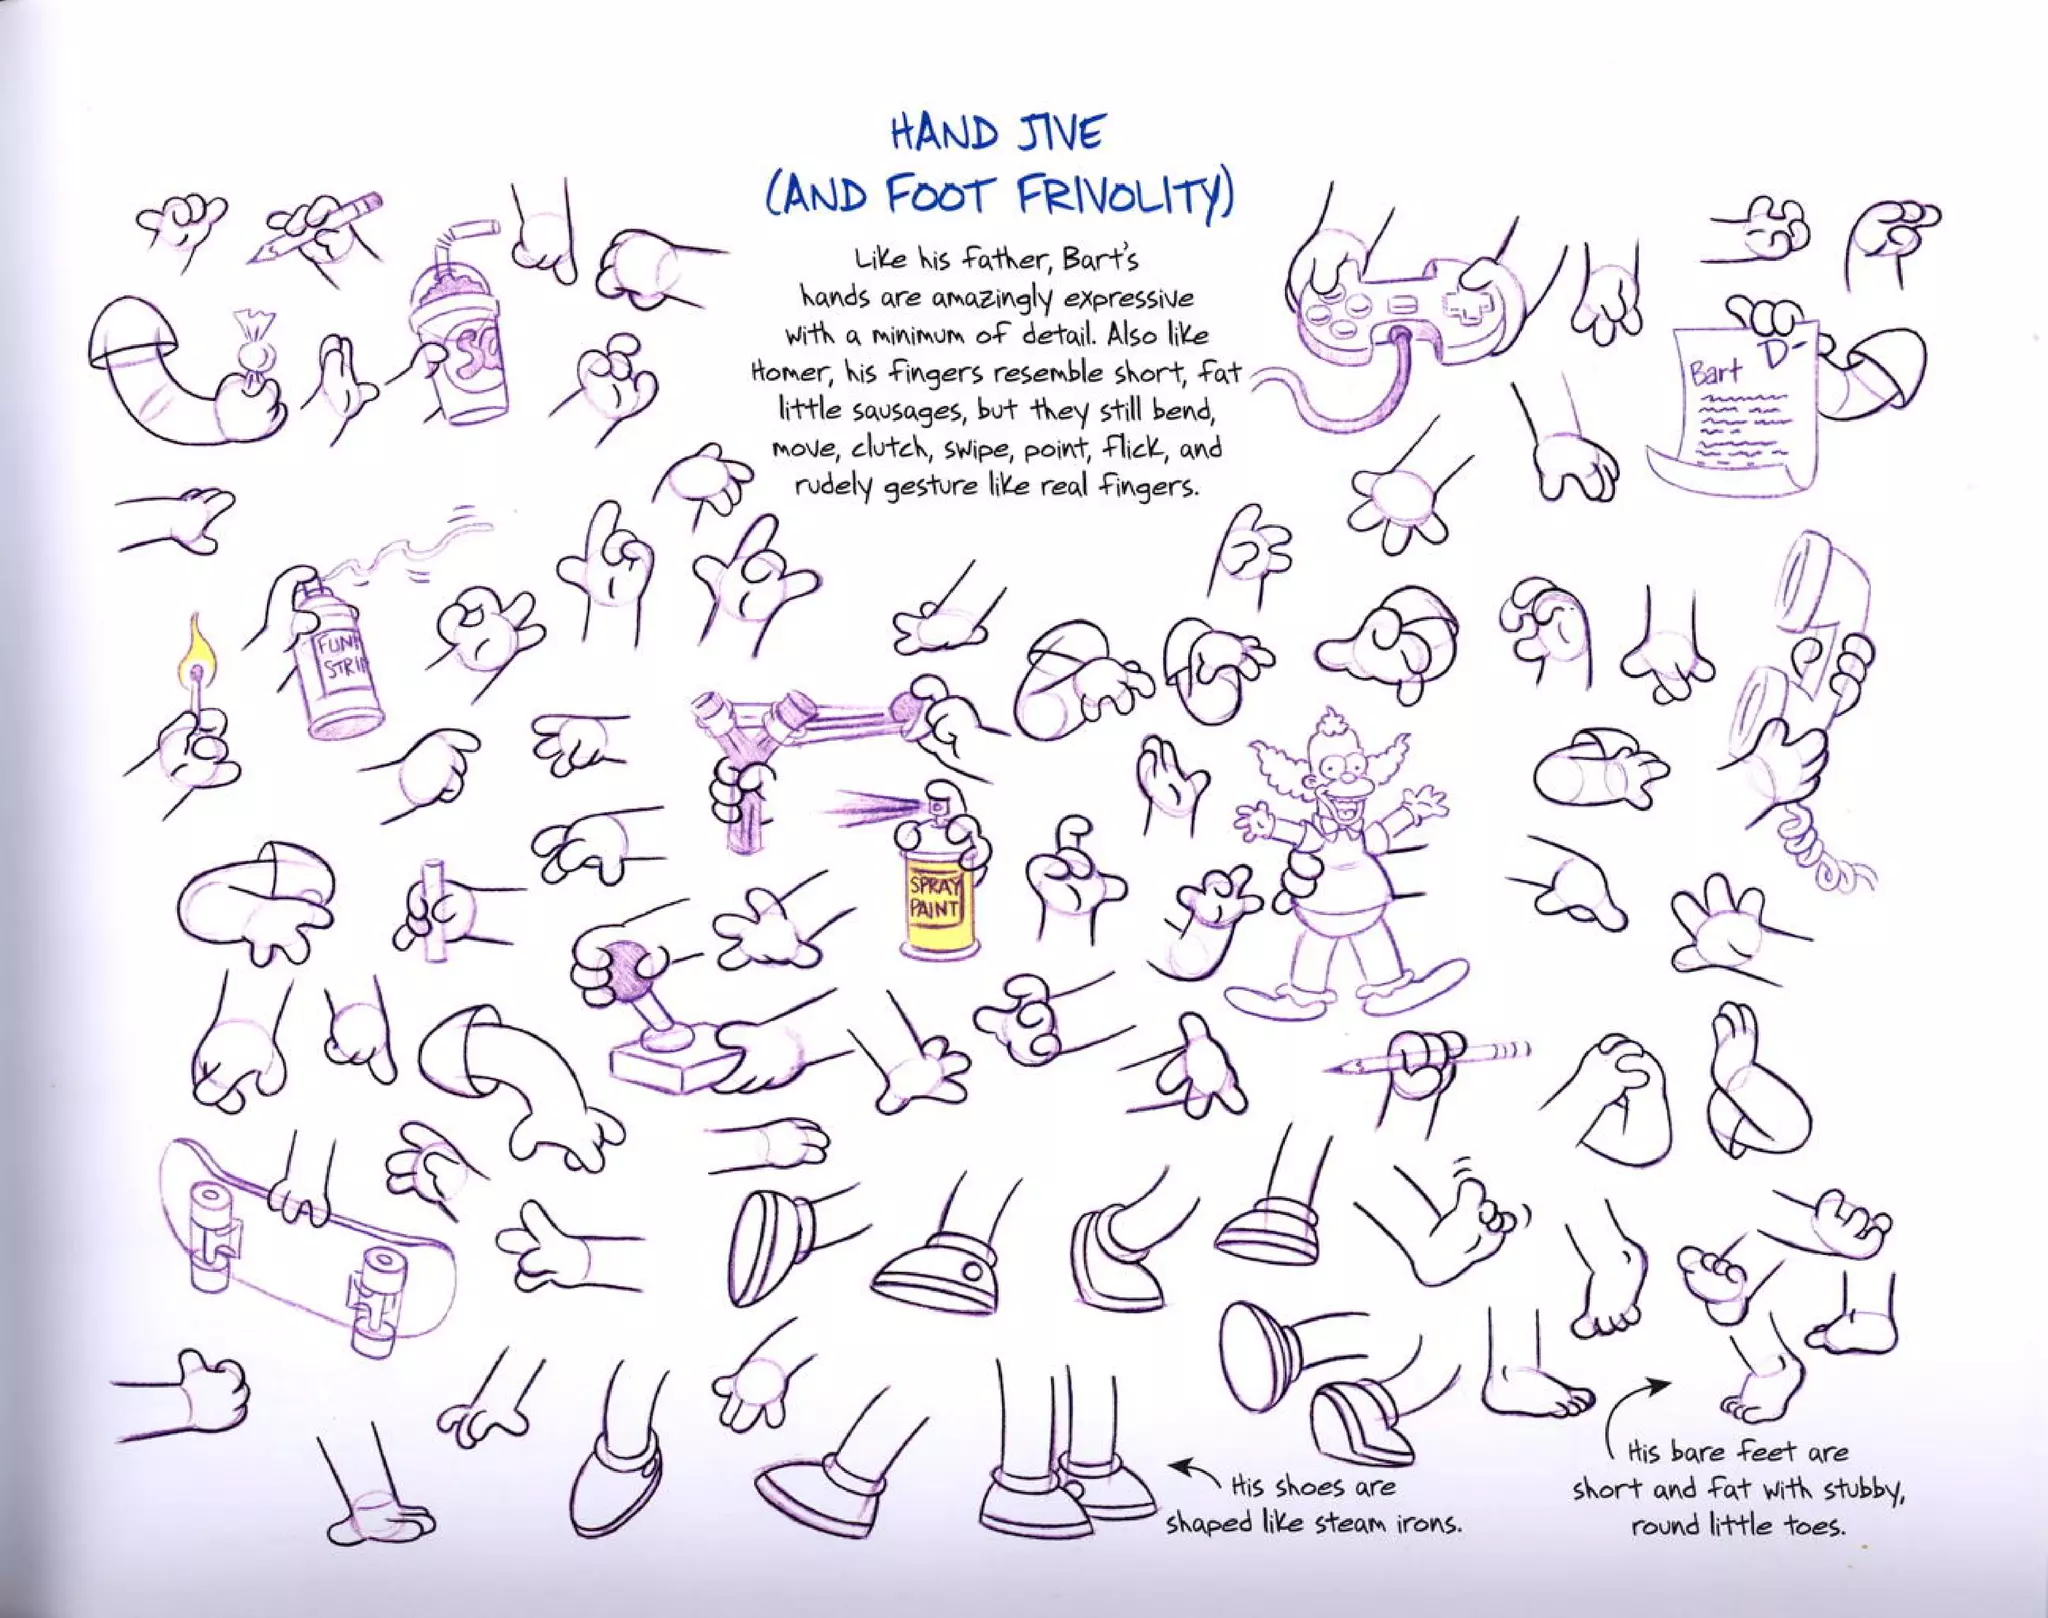 HAND JIVE
(AND FOOT FRIVOLITY)
Like his father, Bart's
hands are amazingly expressive
with a minimum of detail. Also like
Homer, his fingers resemble short, fat
little sausages, but they still bend,
move, clutch, swipe, point, flick, and
rudely gesture like real fingers.
SQ
Bart D-
FUN
STRI
SPRAY
PAINT
His shoes are
shaped like steam irons.
His bare feet are
short and fat with stubby,
round little toes.